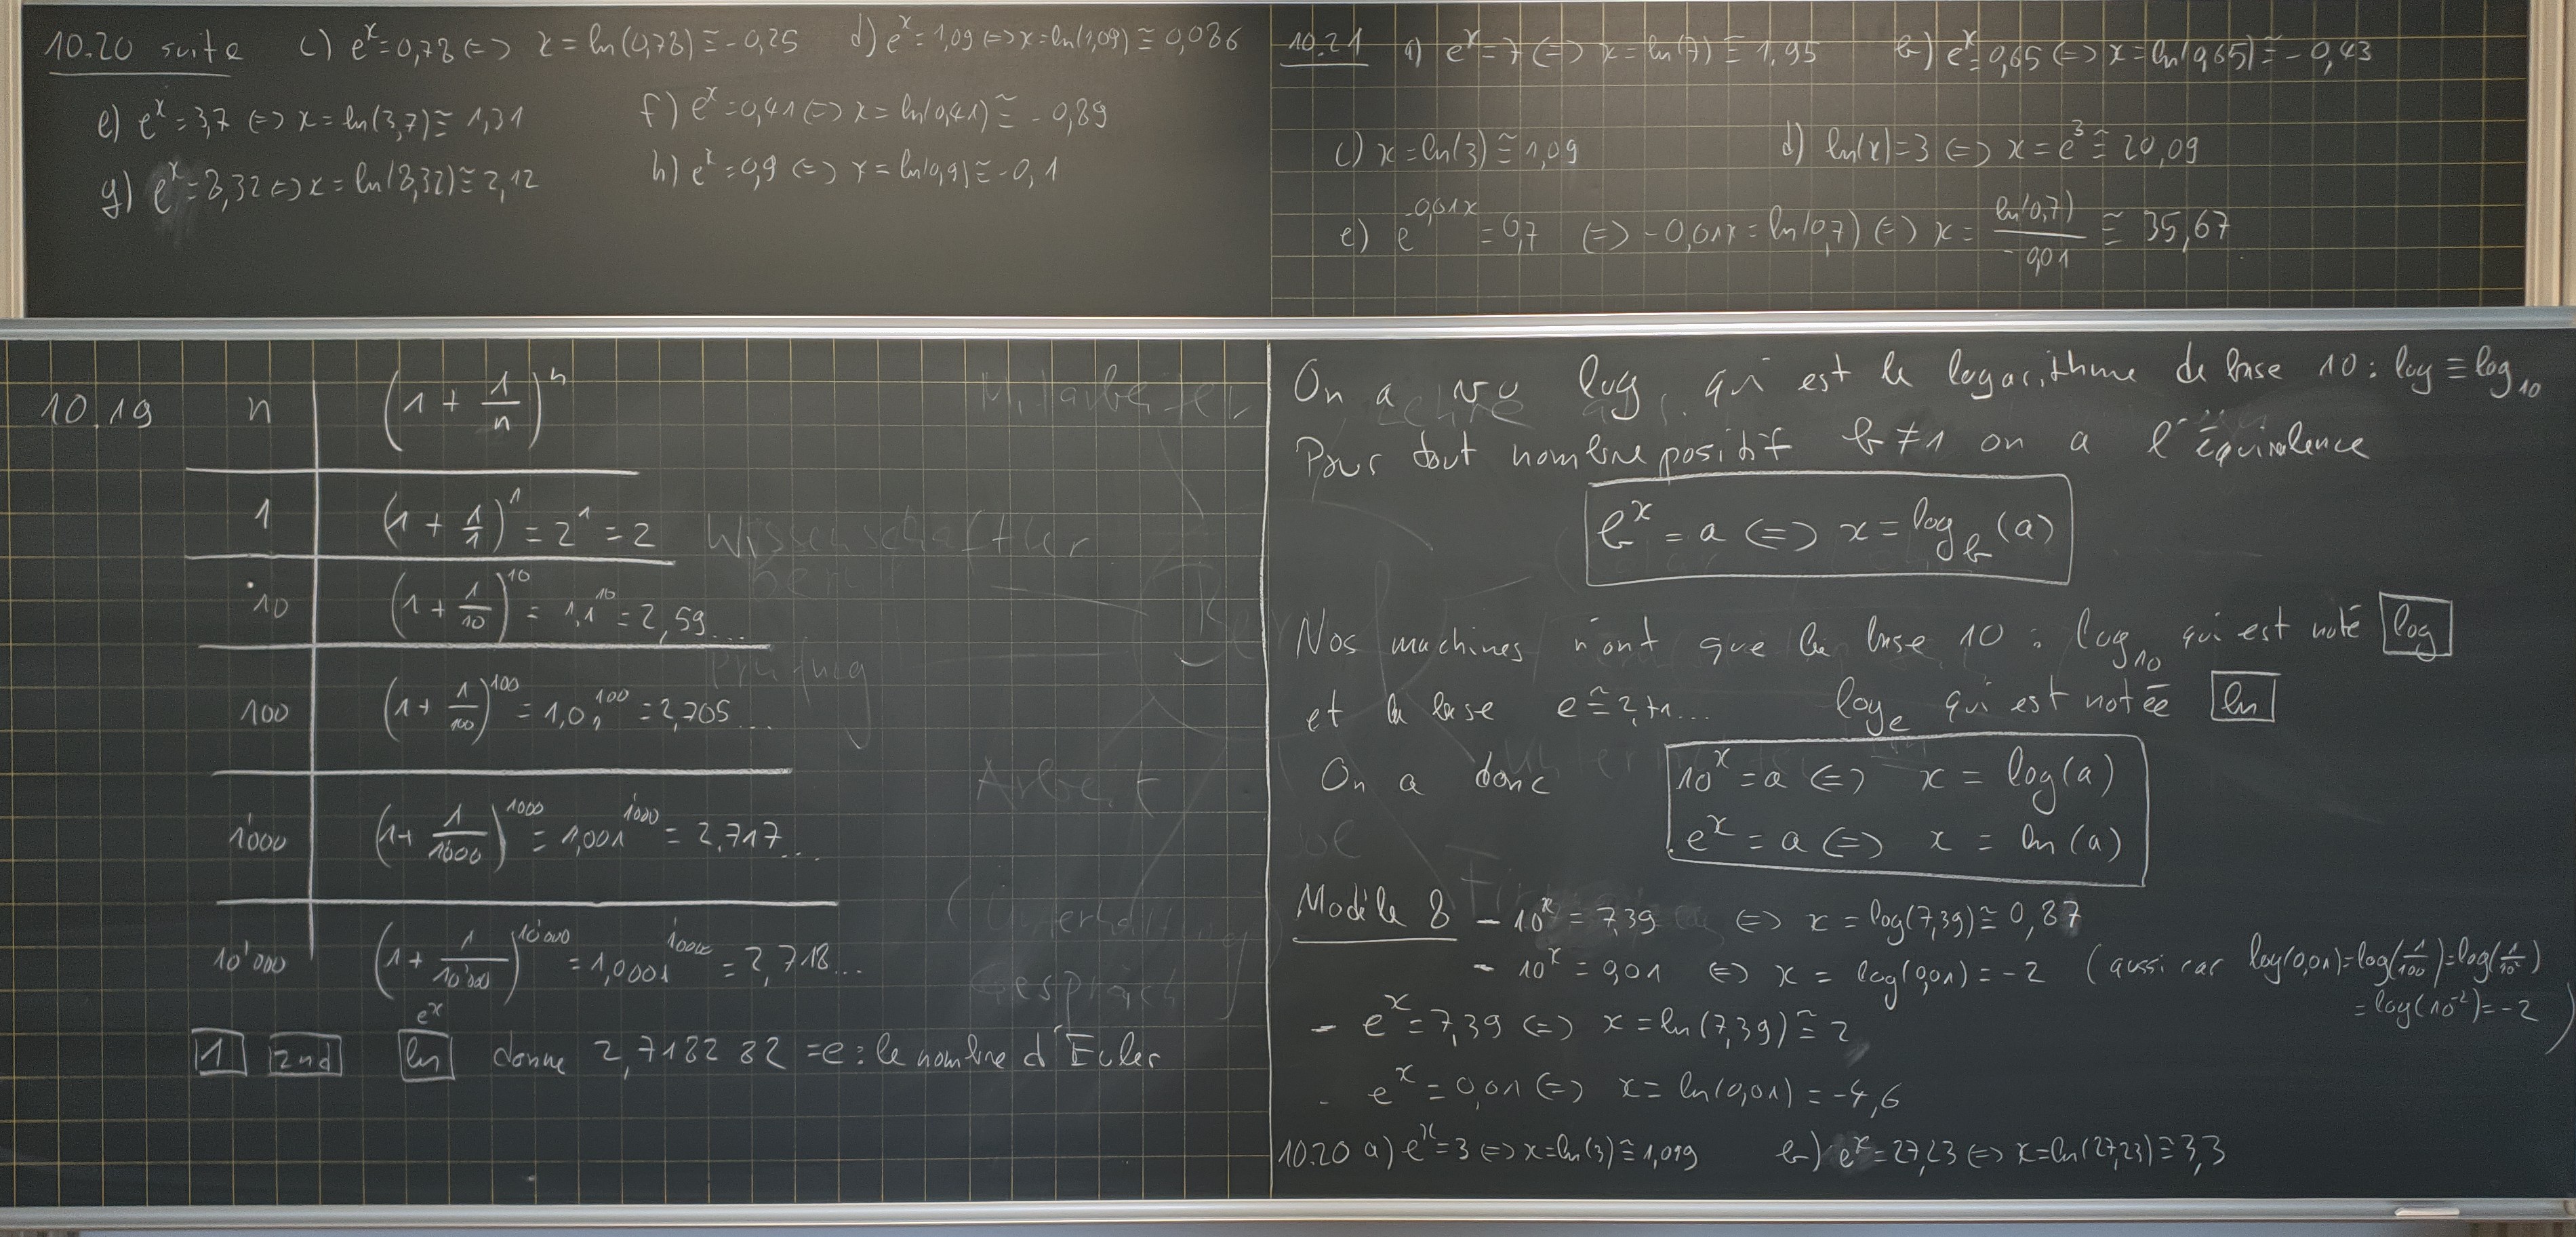 10.20 suite c) e^x = 0,78 <=> x = ln(0,78) ≅ -0,25 d) e^x = 1,09 <=> x = ln(1,09) ≅ 0,086
e) e^x = 3,7 <=> x = ln(3,7) ≅ 1,31 f) e^x = 0,41 <=> x = ln(0,41) ≅ -0,89
g) e^x = 8,32 <=> x = ln(8,32) ≅ 2,12 h) e^x = 0,9 <=> x = ln(0,9) ≅ -0,1
10.21 a) e^x = 7 <=> x = ln(7) ≅ 1,95 b) e^x = 0,65 <=> x = ln(0,65) ≅ -0,43
c) x = ln(3) ≅ 1,09 d) ln(x) = 3 <=> x = e^3 ≅ 20,09
e) e^(-0,01x) = 0,7 <=> -0,01x = ln(0,7) <=> x = ln(0,7)/(-0,01) ≅ 35,67
10.19 n (1 + 1/n)^n
1 (1 + 1/1)^1 = 2^1 = 2
10 (1 + 1/10)^10 = 1,1^10 = 2,59...
100 (1 + 1/100)^100 = 1,01^100 = 2,705...
1'000 (1 + 1/1'000)^1000 = 1,001^1'000 = 2,717...
10'000 (1 + 1/10'000)^10'000 = 1,0001^10'000 = 2,718...
e^x
1 2nd ln donne 2,718282 = e : le nombre d'Euler
Mitarbeiter
Wissenschaftler
Prüfung
Arbeit
(Unterhaltung)
Gespräch
On a vu log, qui est le logarithme de base 10 : log ≡ log_10
Pour tout nombre positif b ≠ 1 on a l'équivalence
b^x = a <=> x = log_b(a)
Nos machines n'ont que la base 10 : log_10 qui est noté log
et la base e ≅ 2,71... log_e qui est notée ln
On a donc 10^x = a <=> x = log(a)
e^x = a <=> x = ln(a)
Modèle 8 - 10^x = 7,39 <=> x = log(7,39) ≅ 0,87
- 10^x = 0,01 <=> x = log(0,01) = -2 (aussi car log(0,01) = log(1/100) = log(1/10^2)
= log(10^-2) = -2)
- e^x = 7,39 <=> x = ln(7,39) ≅ 2
- e^x = 0,01 <=> x = ln(0,01) = -4,6
10.20 a) e^x = 3 <=> x = ln(3) ≅ 1,099 b) e^x = 27,23 <=> x = ln(27,23) ≅ 3,3